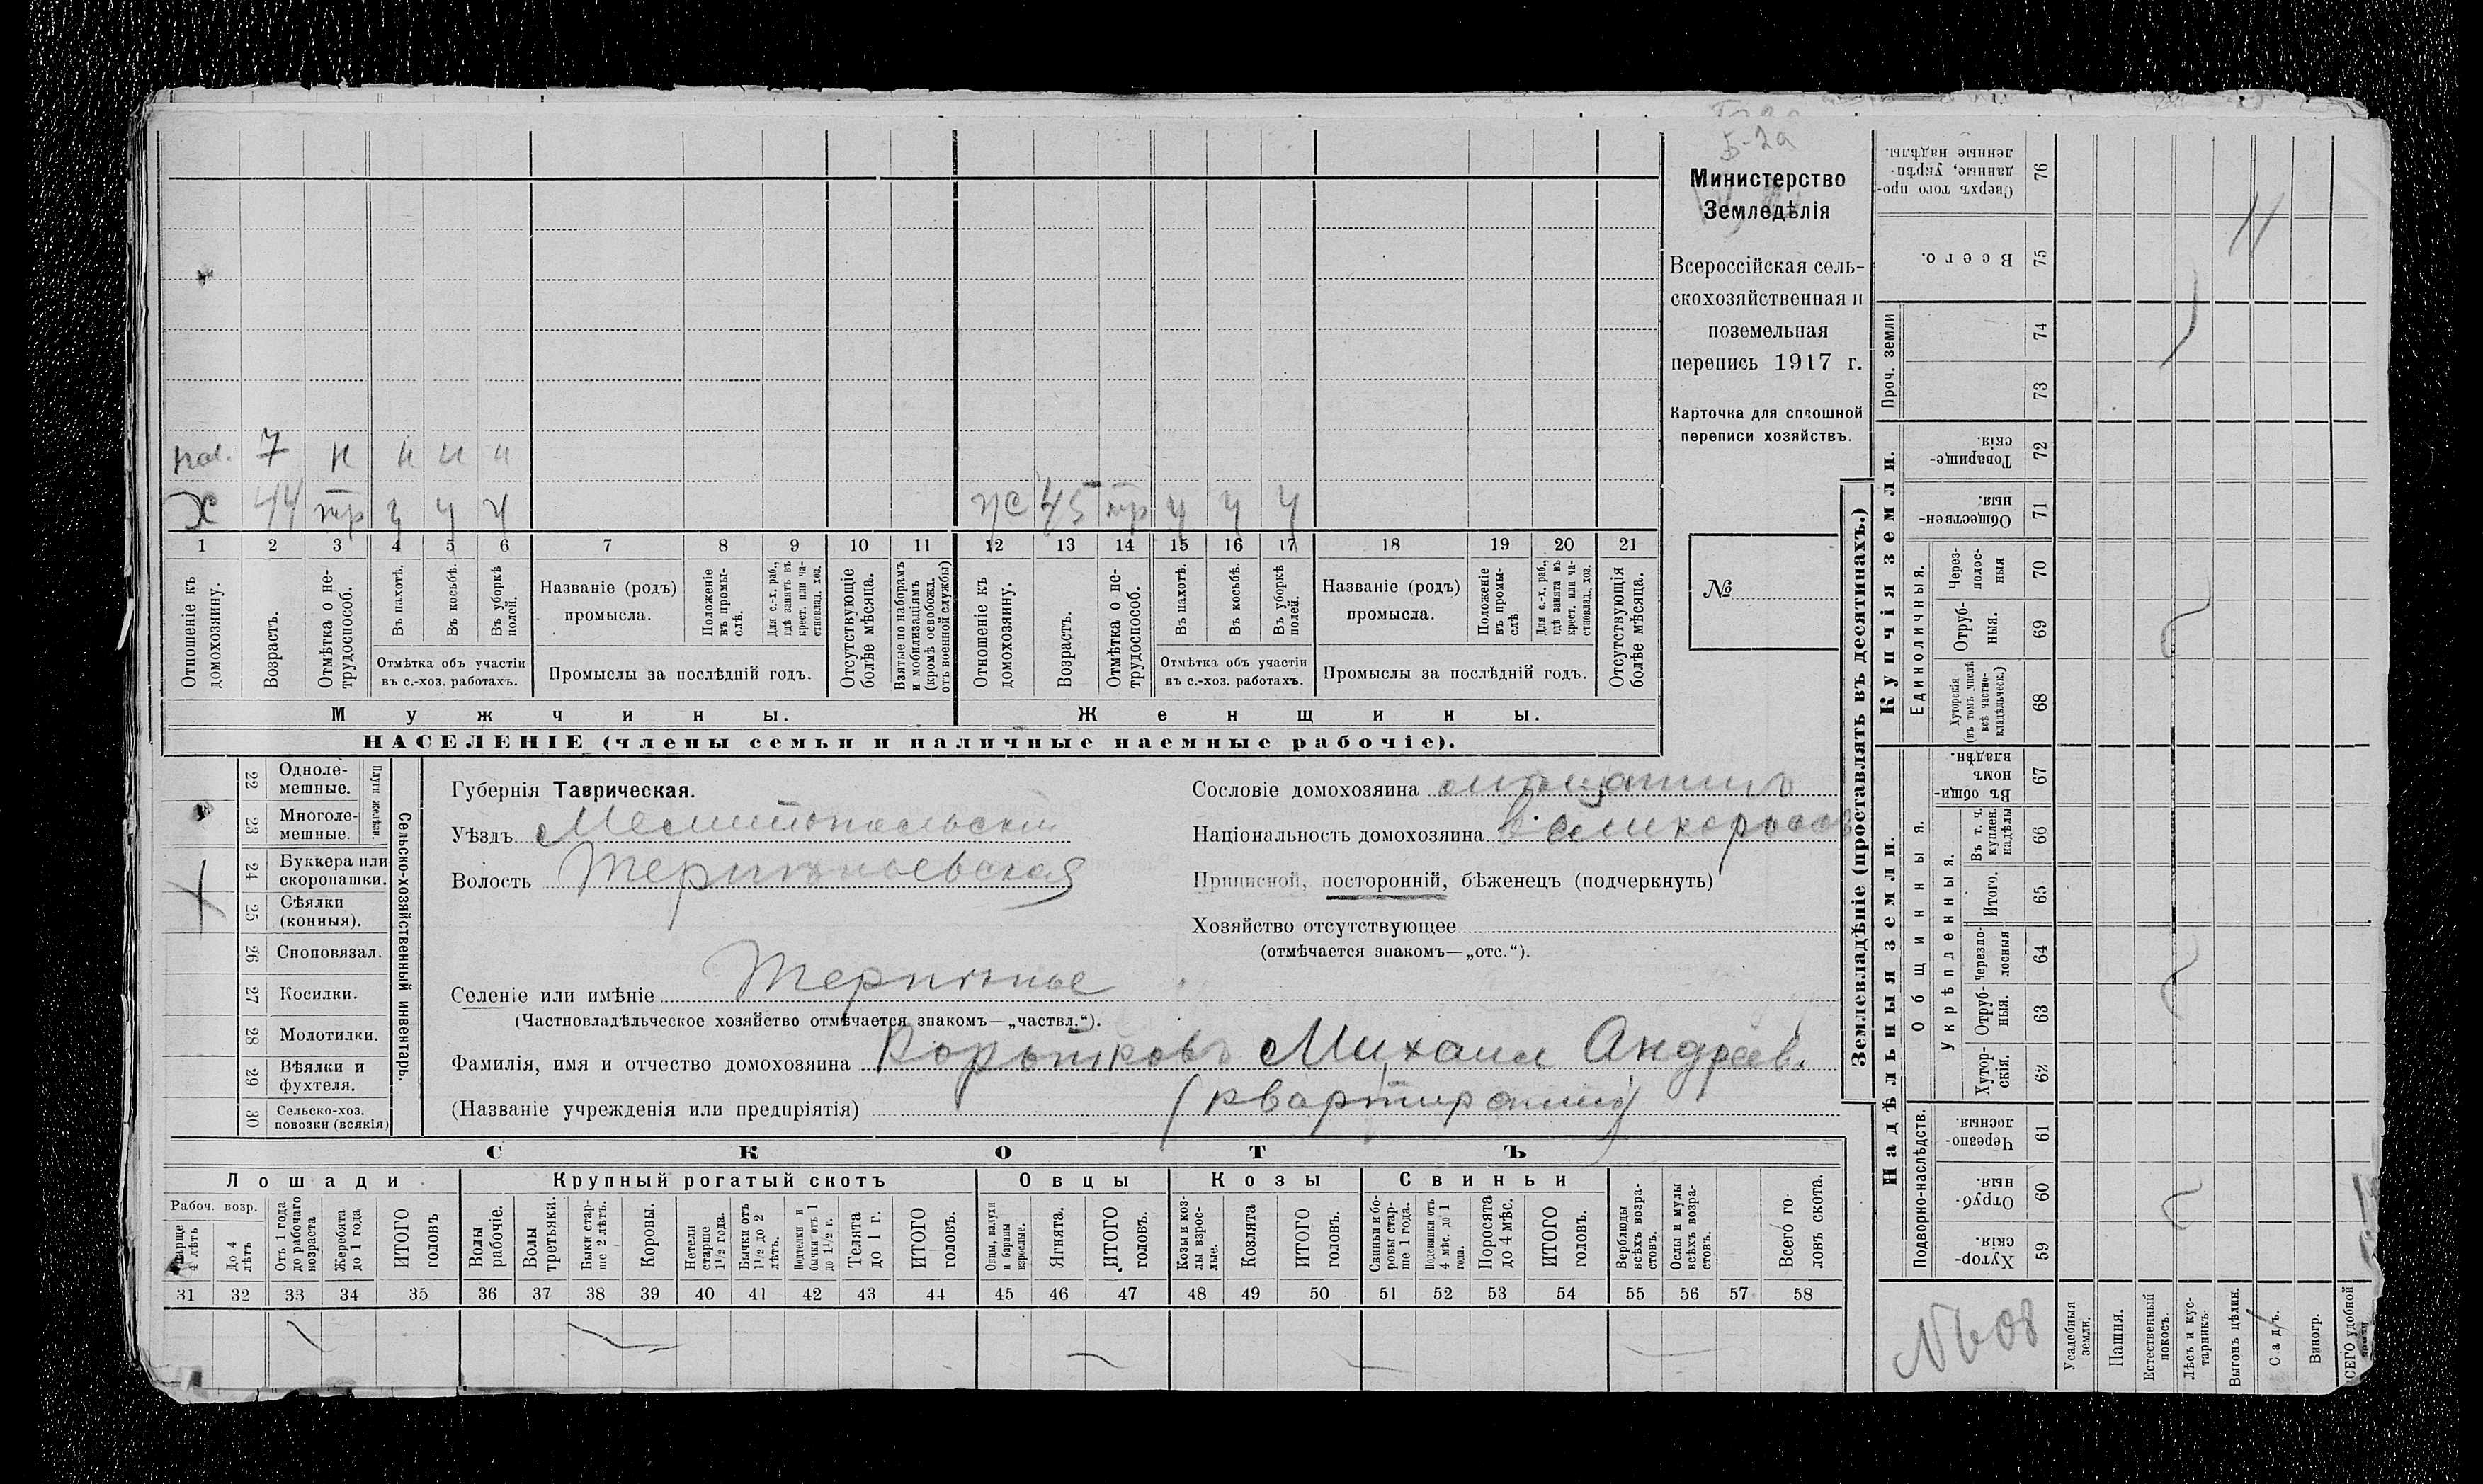 Б-2а
Министерство
Земледѣлія
Всероссійская сель-
скохозяйственная и
поземельная
перепись 1917 г.
Карточка для сплошной
переписи хозяйствъ.
№
7 н н н н
Х 44 тр ч ч ч
ж 45 тр ч ч ч
1 2 3 4 5 6 7 8 9 10 11 12 13 14 15 16 17 18 19 20 21
Отношеніе къ
домохозяину.
Возрастъ.
Отмѣтка о не-
трудоспособ.
Въ пахотѣ.
Въ косьбѣ.
Въ уборкѣ
полей.
Отмѣтка объ участіи
въ с.-хоз. работахъ.
Названіе (родъ)
промысла.
Положеніе
въ промы-
слѣ.
Для с.-х. раб.,
гдѣ занятъ въ
крест. или ча-
стновлад. хоз.
Промыслы за послѣдній годъ.
Отсутствующіе
болѣе мѣсяца.
Взятые по наборамъ
и мобилизаціямъ
(кромѣ освобожд.
отъ военной службы)
Отношеніе къ
домохозяину.
Возрастъ.
Отмѣтка о не-
трудоспособ.
Въ пахотѣ.
Въ косьбѣ.
Въ уборкѣ
полей.
Отмѣтка объ участіи
въ с.-хоз. работахъ.
Названіе (родъ)
промысла.
Положеніе
въ промы-
слѣ
Для с.-х. раб.,
гдѣ занята въ
крест. или ча-
стновлад. хоз.
Промыслы за послѣдній годъ.
Отсутствующія
болѣе мѣсяца.
Мужчины.
Женщины.
НАСЕЛЕНІЕ (члены семьи и наличные наемные рабочіе).
22 Одноле-
мешные.
23 Многоле-
мешные.
Плуги желѣзн.
24 Буккера или
скоропашки.
25 Сѣялки
(конныя).
26 Сноповязал.
27 Косилки.
28 Молотилки.
29 Вѣялки и
фухтеля.
30 Сельско-хоз.
повозки (всякія)
Сельско-хозяйственный инвентарь.
Губернія Таврическая.
Уѣздъ Мелитопольскій
Волость Терпѣньевская
Селеніе или имѣніе Терпѣнье
(Частновладѣльческое хозяйство отмѣчается знакомъ—„частвл.“).
Фамилія, имя и отчество домохозяина Коротковъ Михаил Андреев.
(Названіе учрежденія или предпріятія) (квартирант)
Сословіе домохозяина мѣщанинъ
Національность домохозяина великороссъ
Приписной, посторонній, бѣженецъ (подчеркнуть)
Хозяйство отсутствующее
(отмѣчается знакомъ—„отс.“).
СКОТЪ
Лошади
Рабоч. возр.
Старше
4 лѣтъ
До 4
лѣтъ
Отъ 1 года
до рабочаго
возраста
Жеребята
до 1 года
ИТОГО
головъ
Крупный рогатый скотъ
Волы
рабочіе.
Волы
третьяки.
Быки стар-
ше 2 лѣтъ.
Коровы.
Нетели
старше
1½ года.
Бычки отъ
1½ до 2
лѣтъ.
Подтелки и
бычки отъ 1
до 1½ г.
Телята
до 1 г.
ИТОГО
головъ.
Овцы
Овцы, валухи
и бараны
взрослые.
Ягнята.
ИТОГО
головъ.
Козы
Козы и коз-
лы взрос-
лые.
Козлята
ИТОГО
головъ.
Свиньи
Свиньи и бо-
ровы стар-
ше 1 года.
Подсвинки отъ
4 мѣс. до 1
года.
Поросята
до 4 мѣс.
ИТОГО
головъ.
Верблюды
всѣхъ возра-
стовъ.
Ослы и мулы
всѣхъ возра-
стовъ.
Всего го-
ловъ скота.
31 32 33 34 35 36 37 38 39 40 41 42 43 44 45 46 47 48 49 50 51 52 53 54 55 56 57 58
Землевладѣніе (проставлять въ десятинахъ.)
Сверхъ того про-
данные, укрѣп-
ленные надѣлы.
76
Всего.
75
Проч. земли
74
73
Купчія земли.
Товарище-
скія.
72
Обществен-
ныя.
71
Единоличныя.
Через-
полос-
ныя
70
Отруб-
ныя.
69
Хуторскія
(въ томъ числѣ
всѣ частно-
владѣльческ.)
68
Надѣльныя земли.
Общинныя.
Въ общи-
номъ
владѣн.
67
Укрѣпленныя.
Въ т. ч.
куплен.
надѣлы
66
Итого.
65
Черезпо-
лосныя
64
Отруб-
ныя.
63
Хутор-
скія.
62
Подворно-наслѣдств.
Черезпо-
лосныя.
61
Отруб-
ныя.
60
Хутор-
скія.
59
Усадебныя
земли.
Пашня.
Естественный
покосъ.
Лѣсъ и кус-
тарникъ.
Выгонъ цѣлин.
Садъ.
Виногр.
ВСЕГО удобной
земли